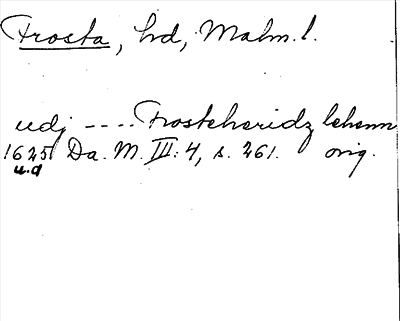 Frosta, hd, Malm. l.
udj ---- Frosteheridz lehenn
1625 Da. M. III: 4, s. 261. orig.
u.d